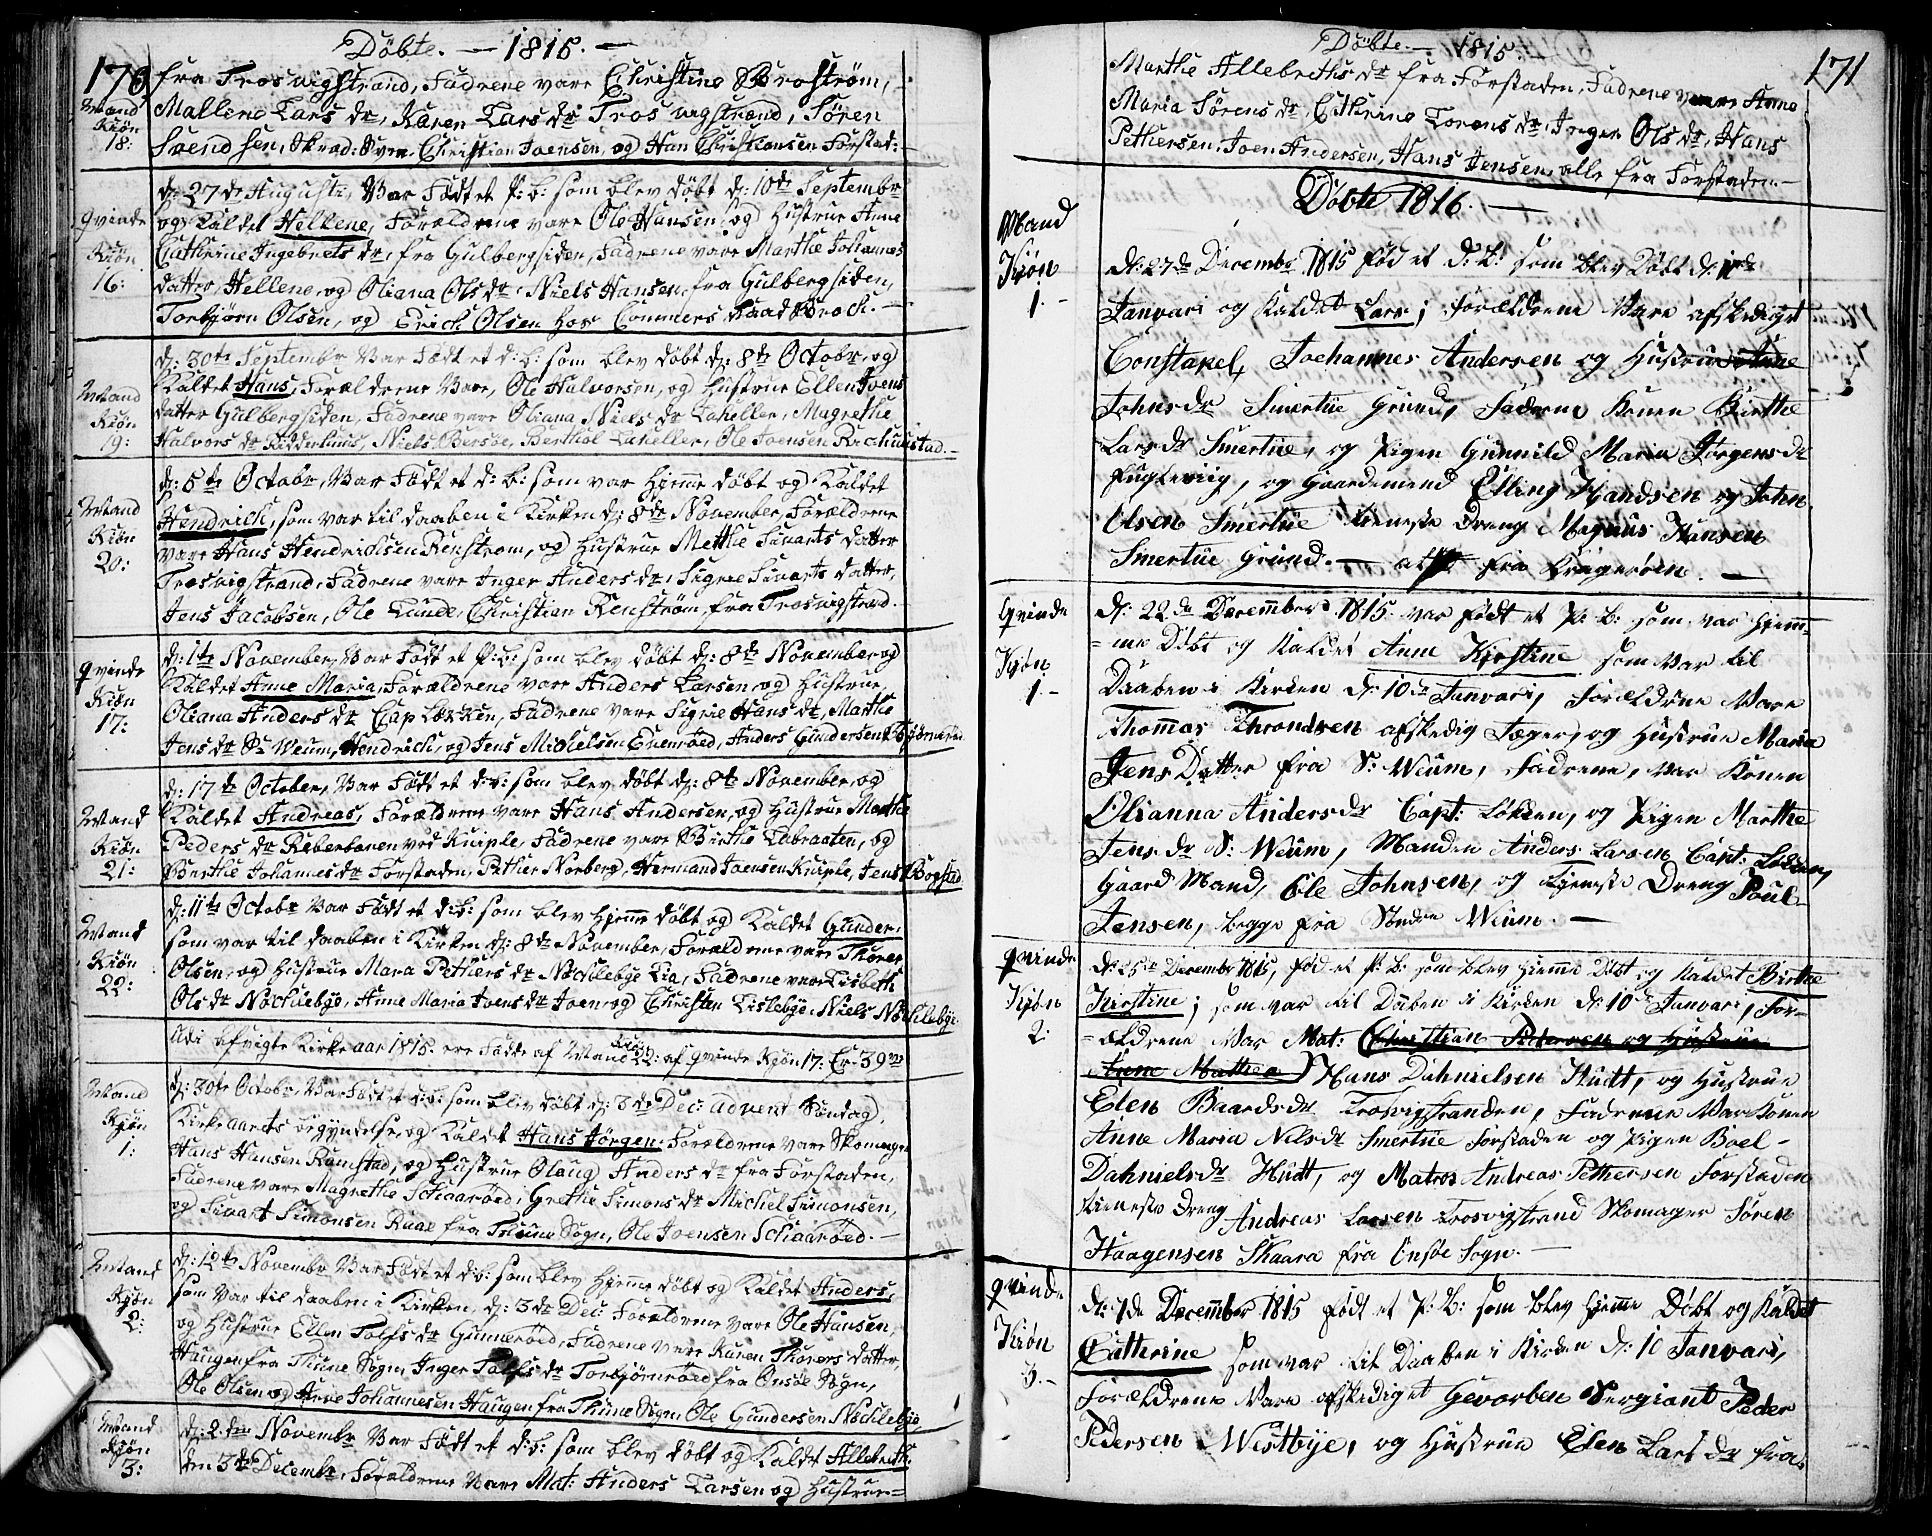 Döbte. — 1815. —
170
fra Trosvigstrand, Fadrene vare Christine Broström,
Mand Mallene Lars dr, Karen Lars dr Trosvigstrand, Sören
Kiøn 18: Svendsen, Skrad: Sven. Christian Joensen, og Han Christiansen Forstad:
d: 27de Augusti, Var Födt et P: b: som blev döbt d: 10de Septembr
qvinde og Kaldet Hellene, Forældrene vare Ole Hansen og Hustrue Anne
Kiøn Cathrine Ingebrets dr, fra Gulbergsiden, Fadrene vare Marthe Johannes
16: datter, Hellene og Oliana Ols dr Niels Hansen fra Gulbergsiden,
Torbjørn Olsen, og Erich Olsen hos Commers Raad Broch. —
d: 30te Septembr Var Födt et d: b: som blev döbt d: 8de Octobr, og
Mand Kaldet Hans, Forældrene Vare, Ole Halvorsen, og Hustrue Ellen Joens
Kiøn datter Gulbergsiden, Fadrene vare Oliana Niels dr Labeller, Magrethe
19: Halvors dr Ridderhuus, Niels Bersöe, Berthol Labeller, Ole Joensen Richustad. —
d: 5te Octobr, Var Födt et d: b: som var hjemme döbt og Kaldet
Mand Hendrich, som var til daaben i Kirken d: 8de November, Forældrene
Kiøn vare Hans Hendrichsen Renstrøm, og Hustrue Metthe Sivarts datter
20: Trosvigstrand, Fadrene vare Inger Anders dr, Sigrie Sivarts datter,
Jens Jacobsen, Ole Lunde, Christian Renstrøm, fra Trosvigstrand.
qvinde d: 1te November, Var Födt et P: b: som blev döbt d: 8de November og
Kiøn Kaldet Anne Maria, Forældrene vare Anders Larsen og Hustrue,
17: Oliana Anders dr Cap Løcken, Fadrene vare Sigrie Hans dr, Marthe
Jens dr S: Weum, Hendrich, og Jens Michelsen Evenröed, Anders Gundersen Biørneröd
d: 17de October, Var Födt et d: b: som blev döbt d: 8de November, og
Mand Kaldet Andreas, Forældrene vare Hans Andersen, og Hustrue Marthe
Kiøn Peders dr Reberbanen ved Kuiple, Fadrene vare Birthe Labraaten, og
21: Berthe Johannes dr Forstaden, Pether Norberg, Hermand Joensen Kuiple, Jens Bogstad
d: 11te Octobr Var Födt et d: b: som blev hjemme döbt og Kaldet Gunder,
Mand som var til daaben i Kirken d: 8de November, Forældrene vare Thorer
Kiøn Olsen, og Hustrue Mara Pethers dr Nöchlebye Lia, Fadrene vare Lisbeth
22: Ols dr Nöchlebye, Anne Maria Joens dr Joen og Christen Lislebye, Niels Nöchlebye
Udi afvigte Kirke aar 1815. ere Födte af Mand Kiøn 22: af qvinde Kiøn 17: Er 39
d: 30te Octobr, Var Födt et d: b: som blev döbt d: 3de Dec: Advent Söndag,
Mand Kirke aarets begyndelse, og Kaldet Hans Jörgen, Forældrene vare Skomager
Kiøn Hans Hansen Ramstad, og Hustrue Olaug Anders dr fra Forstaden,
1: Fadrene vare Magrethe Schaaröed, Grethe Simons dr Michel Simonsen,
og Sivart Simonsen Ruae fra Thune Sogn, Ole Joensen Schaaröed. —
Mand d: 12te Novembr Var Födt et d: b: som blev hjemme döbt og Kaldet Anders,
Kiøn som Var til daaben i Kirken, d: 3de Dec: Forældrene vare Ole Hansen,
2: og Hustrue Ellen Tolfs dr Gunneröed, Fadrene vare Karen Thorers datter,
Haugen fra Thune Sogn, Inger Tolfs dr Torbjørnröed fra Onsöe Sogn,
Ole Olsen og Arne Johannesen Haugen fra Thune Sogn, Ole Gundersen Nöchlebye,
Mand d: 2den Novembr Var Födt et d: b: som blev döbt og Kaldet Allebreth,
Kiøn 3: den 3de Decembr, Forældrene Vare Mat: Anders Larsen og Hustrue =
Döbte. — 1815. —
171
Marthe Allebreths dr fra Forstaden, Fadrene vare Anne
Maria Sörens dr, Cathrine Torens dr, Inger Ols dr, Hans
Pethersen, Joen Andersen, Hans Jensen, alle fra Forstaden. —
Döbte 1816. —
Mand Kjøn 1. — d: 27de Decembr 1815 Föd et d: b: som blev Döbt d: 1ste
Janvari og Kaldet Lars; Forældrene Vare afskediget
Constapel, Joehannes Andersen og Hustrue Anne
Johns dr Smertue Grund, Fadrene Konen Birthe
Lars dr Smertue, og Pigen Gunnild Maria Jørgens dr
Fuglevig, og Gaardmand Elling Handsen og John
Olsen Smertue tieneste Dreng Magnus Hansen
Smertue Grund. — alle fra Kragerøen. —
qvinde d: 22de December 1815 var født et P: b: som var hjem-
Kjøn =me Döbt og Kaldet Anne Kirstine som Var til
1. — Daaben i Kirken d: 10de Janvari, Forældrene Vare
Thommas Throndsen afskedig Jæger, og Hustrue Maria
Jens Datter fra S: Weum, Fadrene, var Konen
Olianna Anders dr Capt: Løkken, og Pigen Marthe
Jens dr S: Weum, Manden Anders Larsen Capt: Løkken,
Gaard Mand, Ole Johnsen, og tjeneste Dreng Poul
Jensen, begge fra Søndre Weum. —
qvinde d: 25de December 1815, föd et P: b: som blev hjemme Döbt og Kaldet Birthe
Kjøn Kirstine; som var til Daben i Kirken d: 10de Janvari, For-
2. =eldrene Var Mat: (Christian Pedersen og Hustrue
Anne Mathea) Hans Dahnielsen Hudt, og Hustrue
Elen Baards dr Trosvigstranden, Fadrene Var Konen
Anne Maria Nils dr Smertue Forstaden og Pigen Boel -
Dahniels dr Hudt, og Matros Andreas Pethersen Forstaden
tieneste Dreng Andreas Larsen Trosvigstrand Skomager Sören
Haagensen Skaara fra Onsöe Sogn. —
qvinde d: 7de December 1815 født et P: b: som blev hjeme Döbt og Kaldet
Kiøn Cathrine som var til Daaben i Kirken d: 10 Janvari,
3. — Forældrene Vare afskediget Gevorben Sergiant Peder
Pedersen Westbye, og Hustrue Elen Lars dr fra